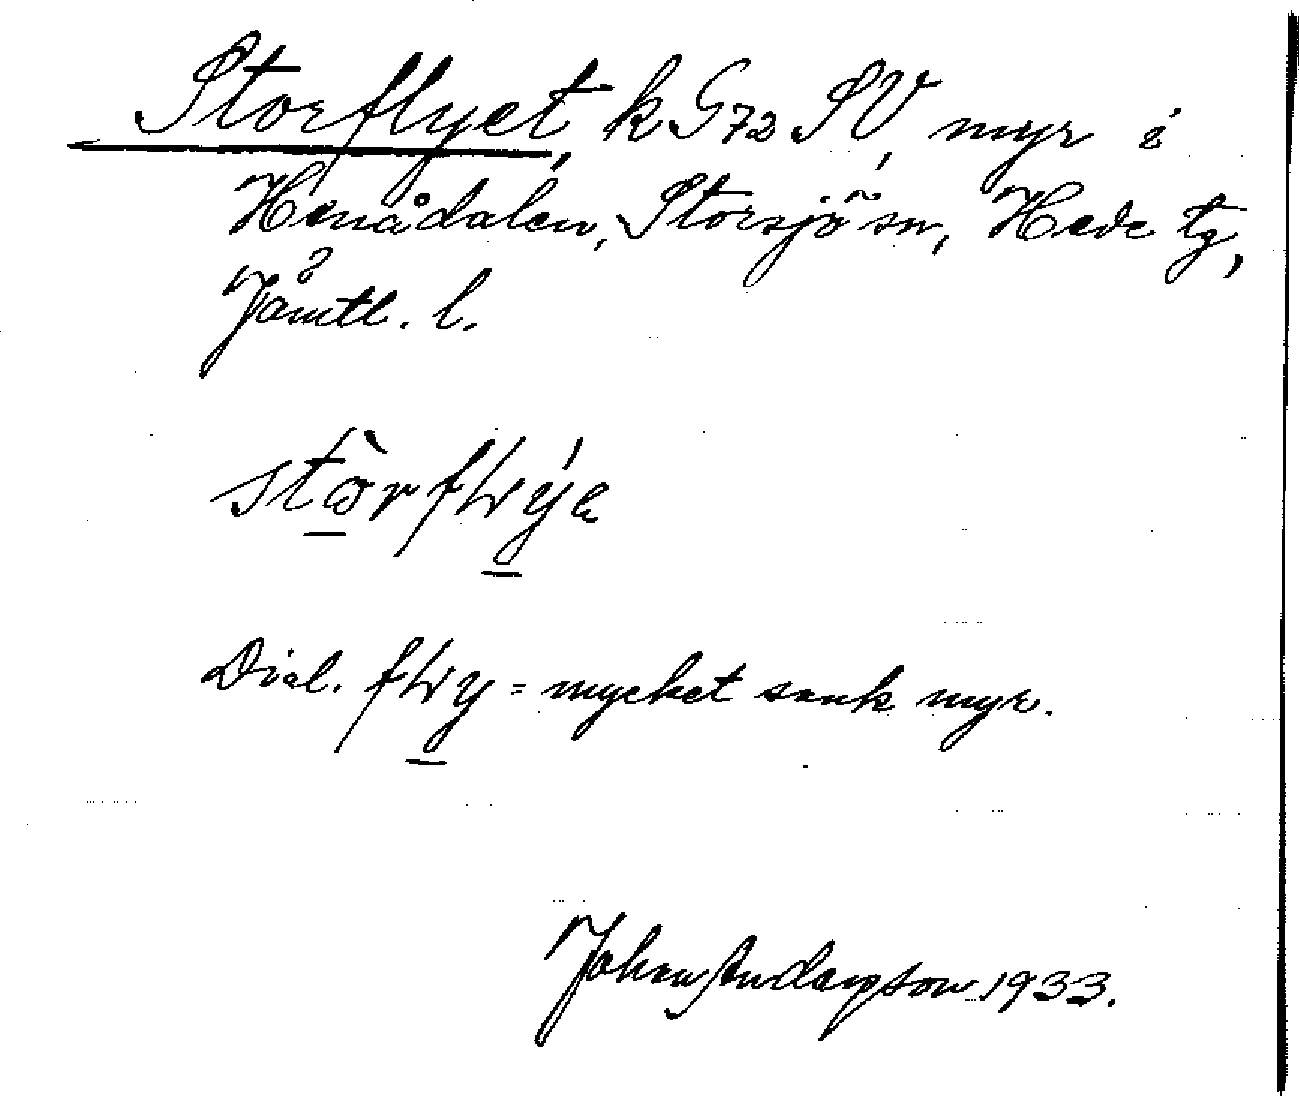 Storflyet, k G72 SV, myr i
Henådalen, Storsjö sn, Hede tg,
Jämtl. l.
Dial. = mycket sank myr.
John Anderson 1933.